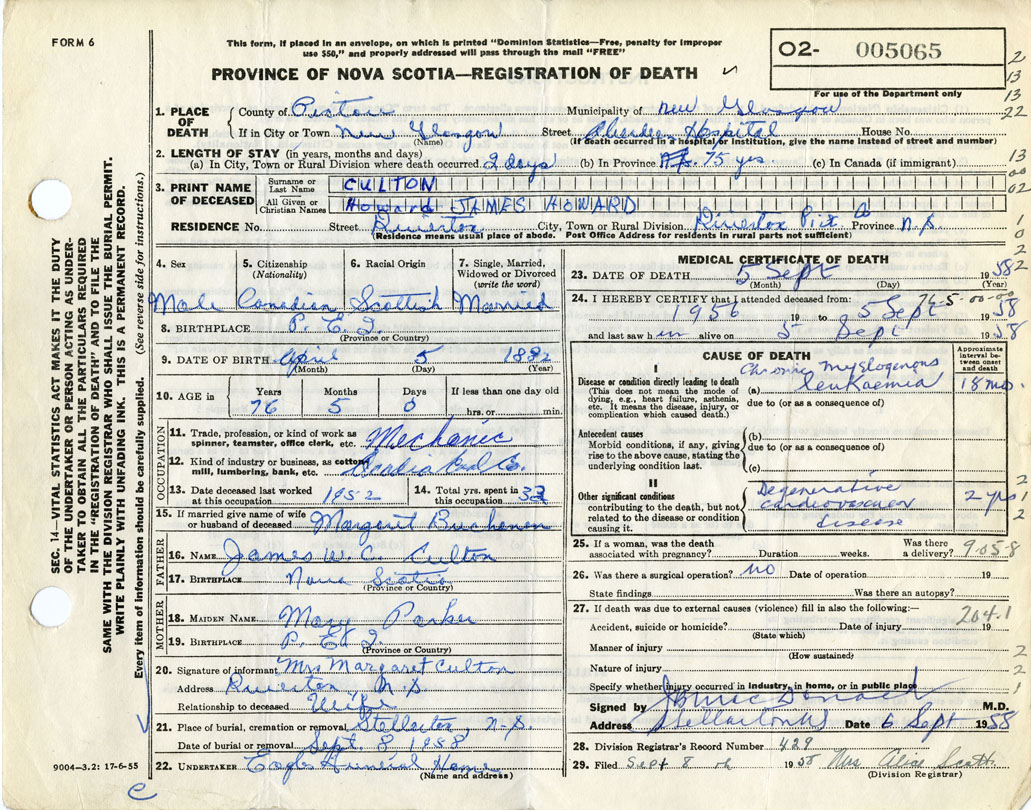 FORM 6
This form, if placed in an envelope, on which is printed "Dominion Statistics—Free, penalty for improper
use $50," and properly addressed will pass through the mail "FREE"
PROVINCE OF NOVA SCOTIA—REGISTRATION OF DEATH
O2- 005065
For use of the Department only
2
13
13
22
1. PLACE OF DEATH
County of Pictou Municipality of New Glasgow
If in City or Town New Glasgow Street Aberdeen Hospital House No.
(Name) (If death occurred in a hospital or institution, give the name instead of street and number)
2. LENGTH OF STAY (in years, months and days)
(a) In City, Town or Rural Division where death occurred 2 days (b) In Province 75 yrs. (c) In Canada (if immigrant)
13
00
02
3. PRINT NAME OF DECEASED
Surname or Last Name CULTON
All Given or Christian Names Howard JAMES HOWARD
RESIDENCE No. Street Riverton City, Town or Rural Division Riverton Pict Co Province N.S.
(Residence means usual place of abode. Post Office Address for residents in rural parts not sufficient)
4. Sex
Male
5. Citizenship (Nationality)
Canadian
6. Racial Origin
Scottish
7. Single, Married, Widowed or Divorced (write the word)
Married
8. BIRTHPLACE P.E.I.
(Province or Country)
9. DATE OF BIRTH April 5 1882
(Month) (Day) (Year)
10. AGE in Years Months Days If less than one day old
76 5 0 hrs. or min.
OCCUPATION
11. Trade, profession, or kind of work as spinner, teamster, office clerk, etc. Mechanic
12. Kind of industry or business, as cotton mill, lumbering, bank, etc. Acadia Coal Co.
13. Date deceased last worked at this occupation 1952
14. Total yrs. spent in this occupation
15. If married give name of wife or husband of deceased Margaret Buchanan
FATHER
16. NAME James W. C. Culton
17. BIRTHPLACE Nova Scotia
(Province or Country)
MOTHER
18. MAIDEN NAME Mary Parker
19. BIRTHPLACE P.E.I.
(Province or Country)
20. Signature of informant Mrs Margaret Culton
Address Riverton, N.S.
Relationship to deceased Wife
21. Place of burial, cremation or removal Stellarton, N.S.
Date of burial or removal Sept. 8, 1958
22. UNDERTAKER Eagle Funeral Home
(Name and address)
MEDICAL CERTIFICATE OF DEATH
23. DATE OF DEATH 5 Sept 1958
(Month) (Day) (Year)
24. I HEREBY CERTIFY that I attended deceased from:
76-5-00-00
1956 19 to 5 Sept 1958
and last saw him alive on 5 Sept 1958
CAUSE OF DEATH
Approximate interval between onset and death
I
Disease or condition directly leading to death
(This does not mean the mode of dying, e.g., heart failure, asthenia, etc. It means the disease, injury, or complication which caused death.)
(a) Chronic myelogenous leukaemia 18 mos.
due to (or as a consequence of)
Antecedent causes
Morbid conditions, if any, giving rise to the above cause, stating the underlying condition last.
(b)
due to (or as a consequence of)
(c)
II
Other significant conditions
contributing to the death, but not related to the disease or condition causing it.
Degenerative
cardiovascular
disease
2 yrs
25. If a woman, was the death associated with pregnancy? Duration weeks. Was there a delivery?
905-8
26. Was there a surgical operation? no Date of operation 19
State findings Was there an autopsy?
27. If death was due to external causes (violence) fill in also the following:—
204.1
Accident, suicide or homicide? Date of injury 19
(State which)
Manner of injury
(How sustained)
Nature of injury
Specify whether injury occurred in industry, in home, or in public place
Signed by J B MacDonald M.D.
Address Stellarton NS Date 6 Sept 1958
28. Division Registrar's Record Number 429
29. Filed Sept 8 th 1958 Mrs Alice Scott
(Division Registrar)
SEC. 14—VITAL STATISTICS ACT MAKES IT THE DUTY
OF THE UNDERTAKER OR PERSON ACTING AS UNDER-
TAKER TO OBTAIN ALL THE PARTICULARS REQUIRED
IN THE "REGISTRATION OF DEATH" AND TO FILE THE
SAME WITH THE DIVISION REGISTRAR WHO SHALL ISSUE THE BURIAL PERMIT.
WRITE PLAINLY WITH UNFADING INK. THIS IS A PERMANENT RECORD.
Every item of information should be carefully supplied. (See reverse side for instructions.)
9004—3.2: 17-6-55
C